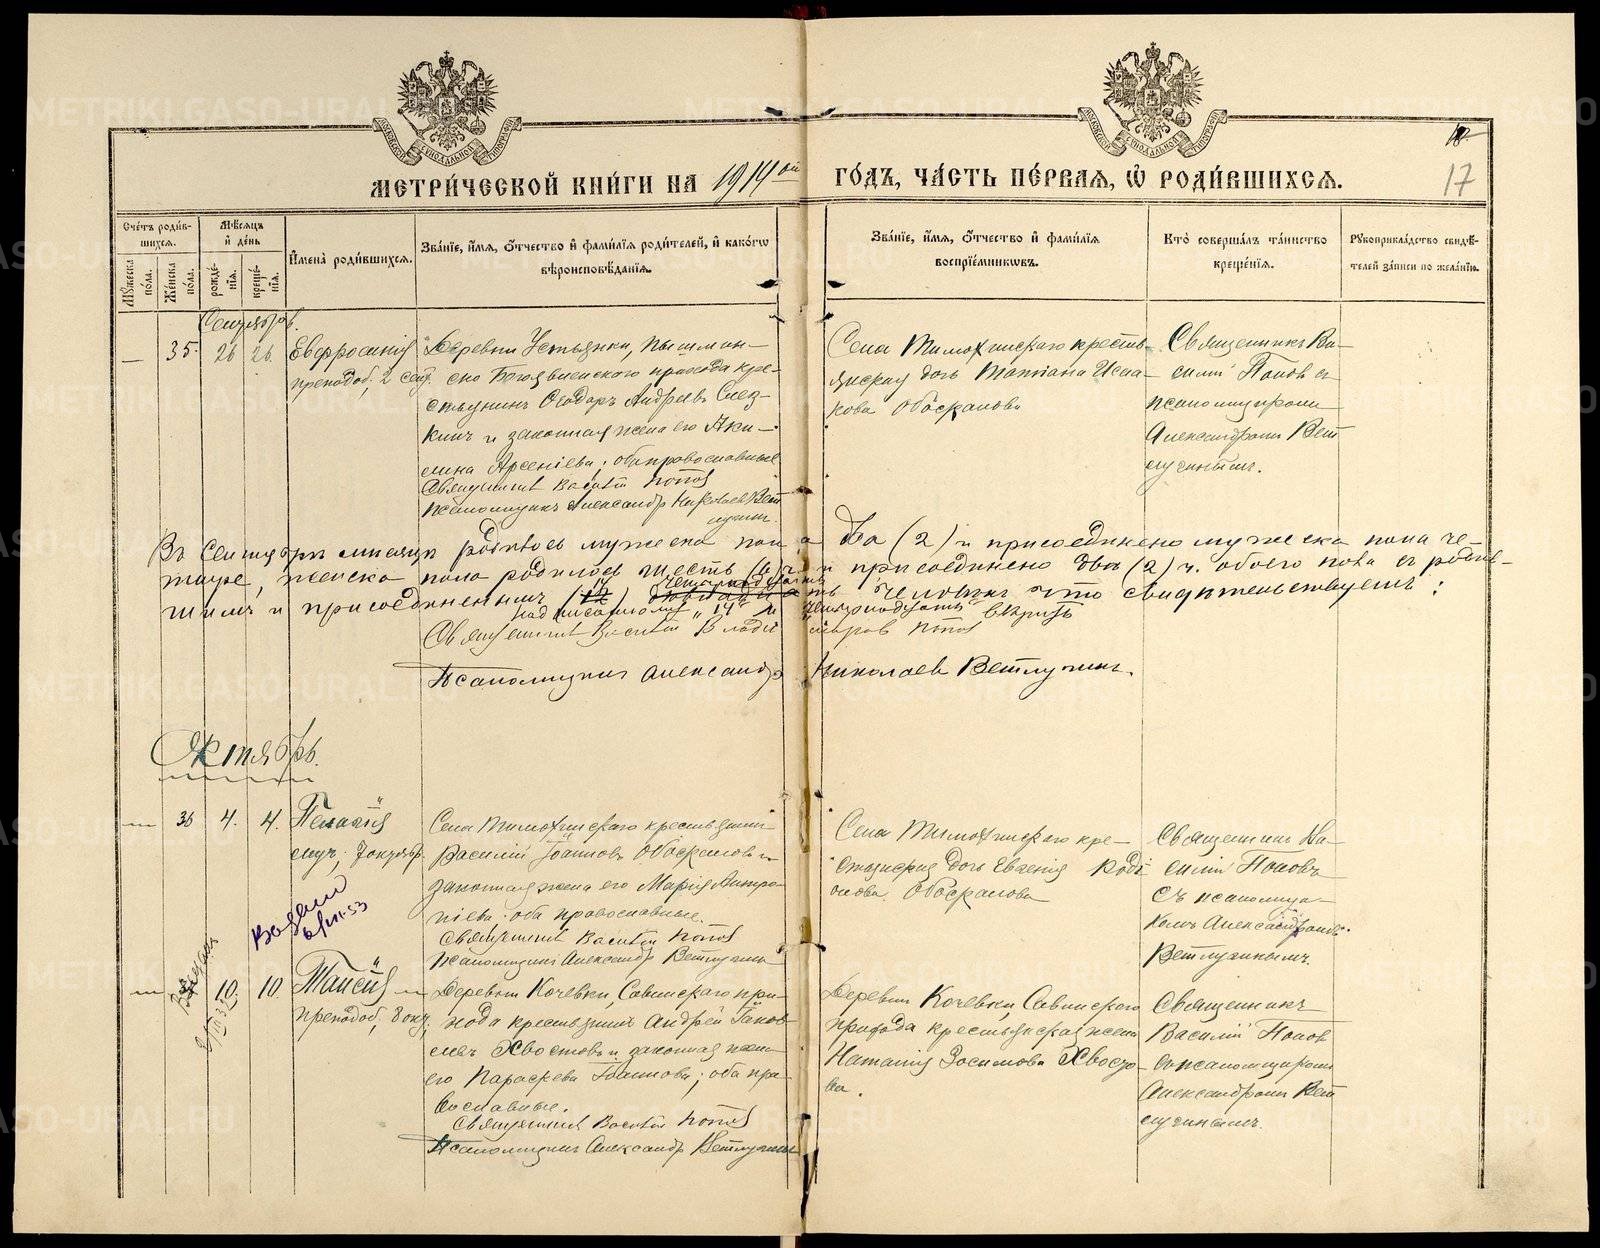 МЕТРИ́ЧЕСКОЙ КНИ́ГИ НА 1914 ой ГО́ДЪ, ЧА́СТЬ ПЕ́РВАЯ, Ѡ҆ РОДИ́ВШИХСЯ.
18
17
Сче́тъ роди́вшихся.
Мѣ́сяцъ и҆ де́нь
Мꙋ́жеска по́ла.
Же́нска по́ла.
рожде́нїя.
креще́нїя.
И҆мена̀ роди́вшихся.
Зва́нїе, и҆́мя, ѻ҆́тчество и҆ фамѝлїя роди́телей, и҆ како́гѡ
вѣроисповѣ́данїя.
Зва́нїе, и҆́мя, ѻ҆́тчество и҆ фамѝлїя
воспрїе́мникѡвъ.
Кто̀ соверша́лъ та́инство
креще́нїя.
Рꙋкоприкла́дство свидѣ́-
телей за́писи по жела́нїю.
Сентябрь.
— 35. 26 26.
Евфросинія
преподоб, 2 сент.
Деревни Устьянки, Пышмин-
ско Богоявленского прихода кре-
стьянинъ Ѳеодоръ Андреевъ
и законная жена его Аки-
лина Арсеніева; оба православные
Священникъ Василій Попов
Псаломщикъ Александр Николаев Вет
лугин.
Села Тимохинскаго кресть-
янская дочь Татіана Исаа-
кова Обоскалова
Священникъ Ва-
силій Попов съ
псаломщикомъ
Александромъ Вет
лугинымъ.
Въ Сентябрѣ месяцѣ родилось мужеска пола два (2) и присоединено мужеска пола че-
тыре, женска пола родилось шесть (6) ч. и присоединено два (2) ч. обоего пола съ родив-
шимъ и присоединеннымъ (14) четырнадцать человѣкъ что свидѣтельствуемъ:
надписанному "14" и "четырнадцать" вѣрить
Священникъ Василій Владиміров Попов
Псаломщикъ Александр Николаев Ветлугинъ.
Октябрь.
— 36 4. 4.
Пелагія
муч, 7 октябр.
Села Тимохинскаго крестьянин
Василій Іоанновъ Обоскаловъ и
законная жена его Марія
оба православные.
Священникъ Василій Попов
Псаломщикъ Александр Ветлугинъ
Села Тимохинскаго кре-
стьянская дочь Евгенія Роді
онова Обоскалова
Священник Ва-
силій Поповъ
съ псаломщи-
комъ Александромъ
Ветлугинымъ.
— 10. 10.
Таисія
преподоб, 8 окт.
Деревни Кочевки, Савинскаго при-
хода крестьянинъ Андрей
Хвостовъ и законная жена
его Параскева Іоаннова; оба пра-
вославные.
Священникъ Василій Попов
Псаломщикъ Александр Ветлугинъ
Деревни Кочевки, Савинского
прихода крестьянская жена
Наталія Зосимова Хвосто-
ва.
Священникъ
Василій Попов
съ псаломщикомъ
Александромъ Вет
лугинымъ.
METRIKI.GASO-URAL.RU